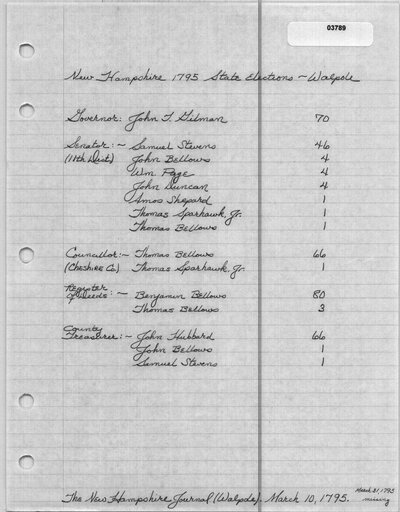 03789
New Hampshire 1795 State Elections ~ Walpole
Governor: John T. Gilman 70
Senator: ~ Samuel Stevens 46
(11th Dist) John Bellows 4
Wm Page 4
John Duncan 4
Amos Shepard 1
Thomas Sparhawk, Jr. 1
Thomas Bellows 1
Councillor: ~ Thomas Bellows 66
(Cheshire Co.) Thomas Sparhawk, Jr. 1
Register
of Deeds: ~ Benjamin Bellows 80
Thomas Bellows 3
County
Treasurer: ~ John Hubbard 66
John Bellows 1
Samuel Stevens 1
The New Hampshire Journal (Walpole). March 10, 1795.
March 31, 1795
missing